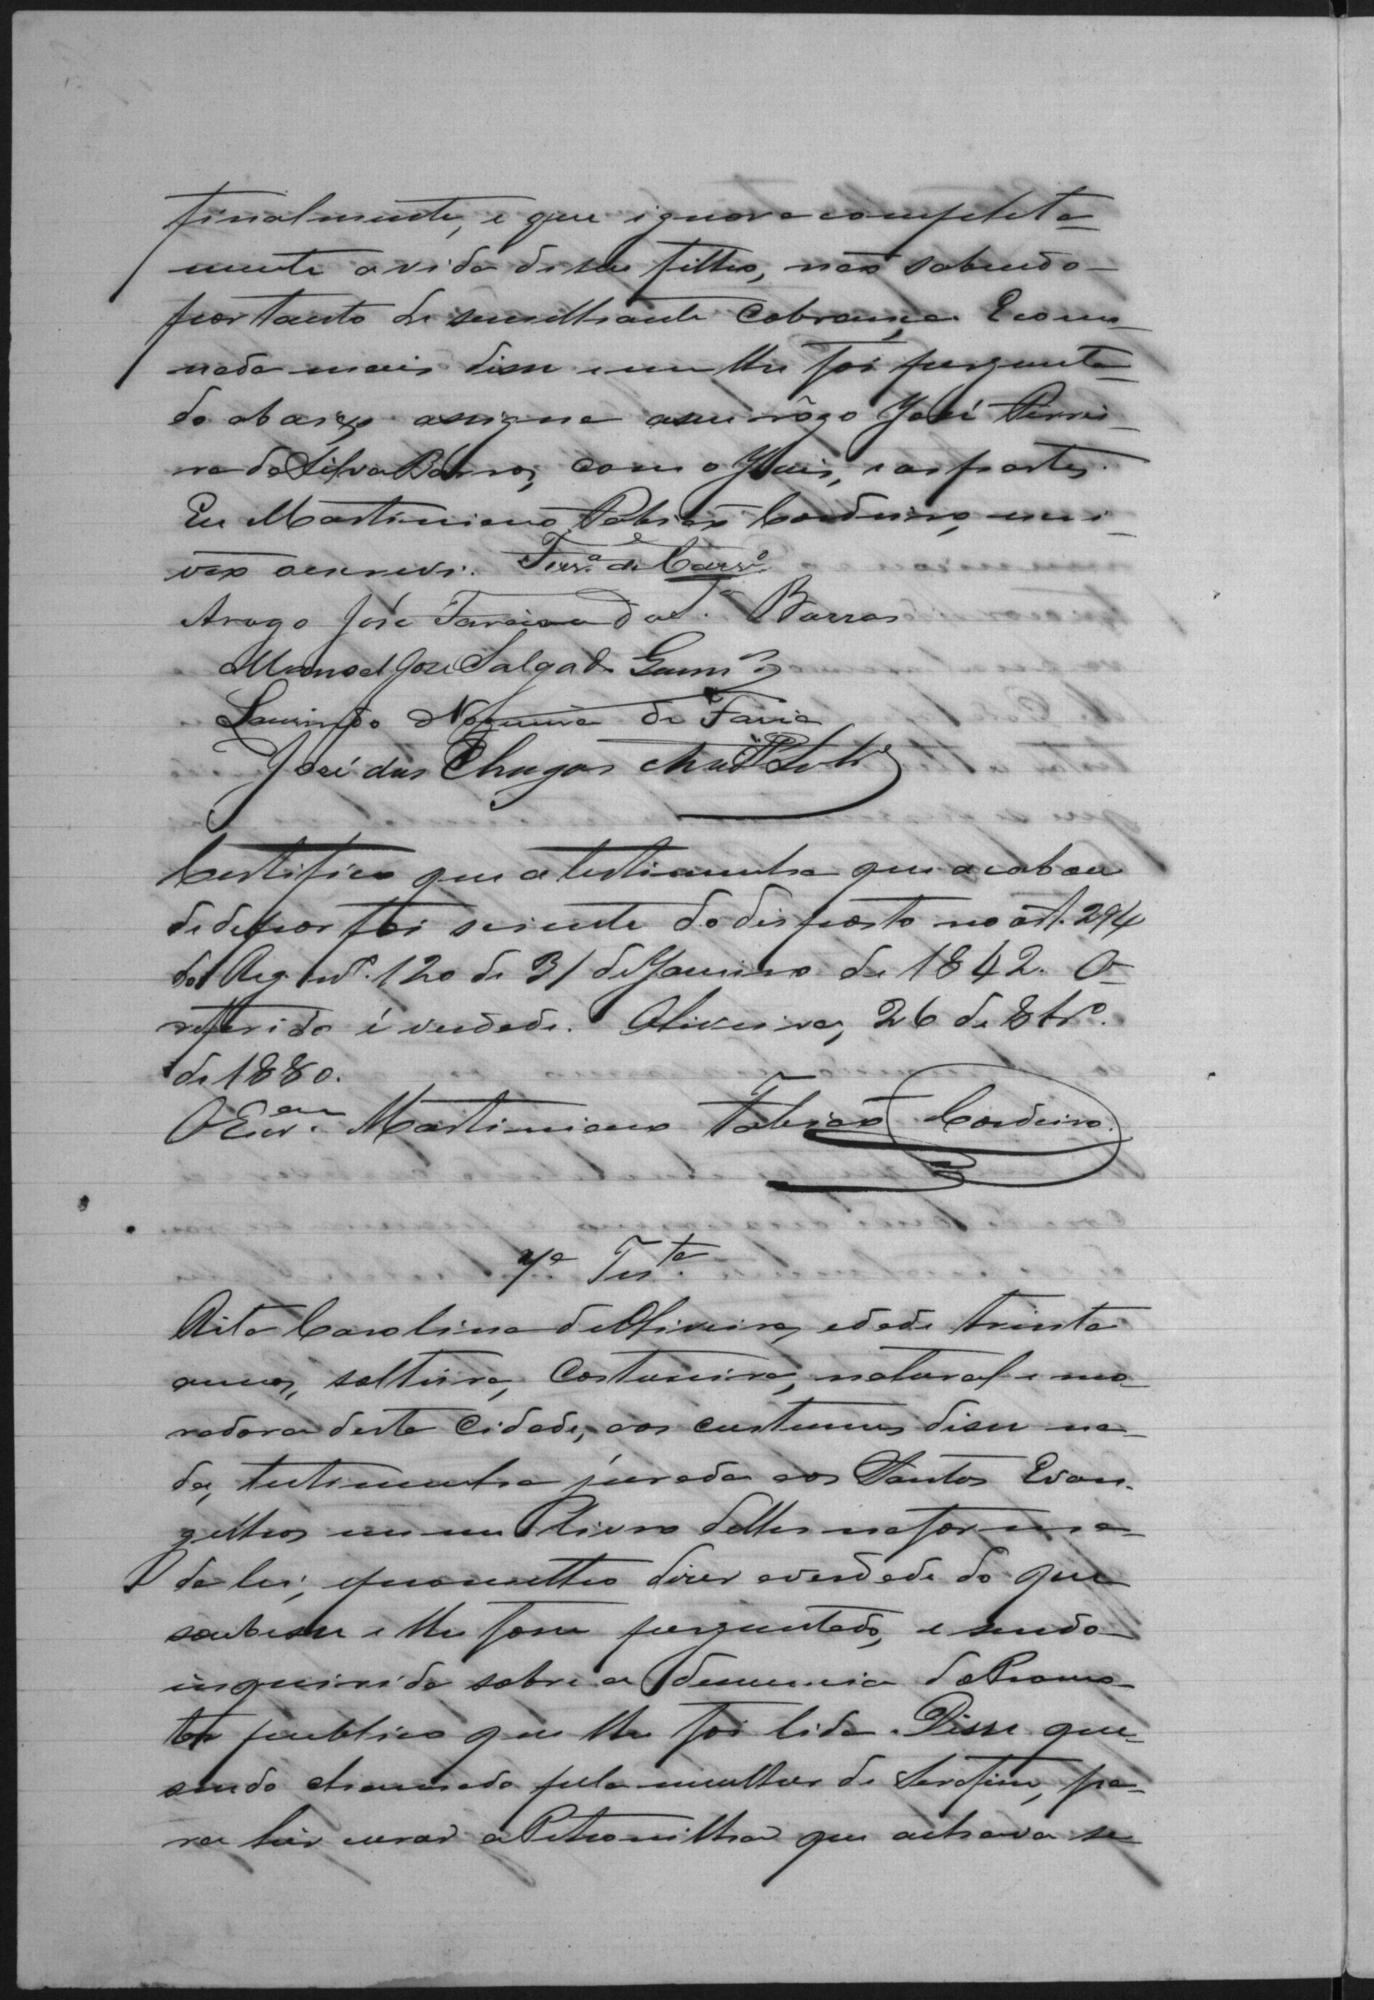 finalmente, e que ignora completa-
mente a vida de seu filho, não sabendo
portanto de semelhante cobrança. E como
nada mais disse nem lhe foi pergunta-
do abaixo assigna a seu rôgo José Perei-
ra da Silva Barros, com o Juis, e as partes.
Eu Martiniano Fabião Cordeiro, escri-
vão o escrevi. Ferrª de Carvº
Arogo José Pareira da Sª Barros
Manoel José Salgado
Laurindo Nogueira de Faria
José das Chagas
Certifico que a testimunha que acabou
de depor foi sciente do disposto no art. 294
do Reg. nº. 120 de 31 de Janeiro de 1842. O
referido é verdade. Oliveira, 26 de 8brº.
de 1880.
O Escrᵃᵐ Martiniano Fabião Cordeiro.
7ª Tesᵗᵃ.
Rita Carolina de Oliveira, edade trinta
annos, solteira, costureira, natural e mo-
radora desta Cidade, aos custumes disse na-
da, testimunha jurada aos Santos Evan-
gelhos em um livro delles na forma
da lei, e prometteo dizer a verdade do que
soubesse e lhe fosse perguntado, e sendo
inquirida sobre a denuncia do Promo-
tor publico que lhe foi lida. Disse que
sendo chamada pela mulher de Serafim, pa-
ra hir curar a Petronilha que achava se